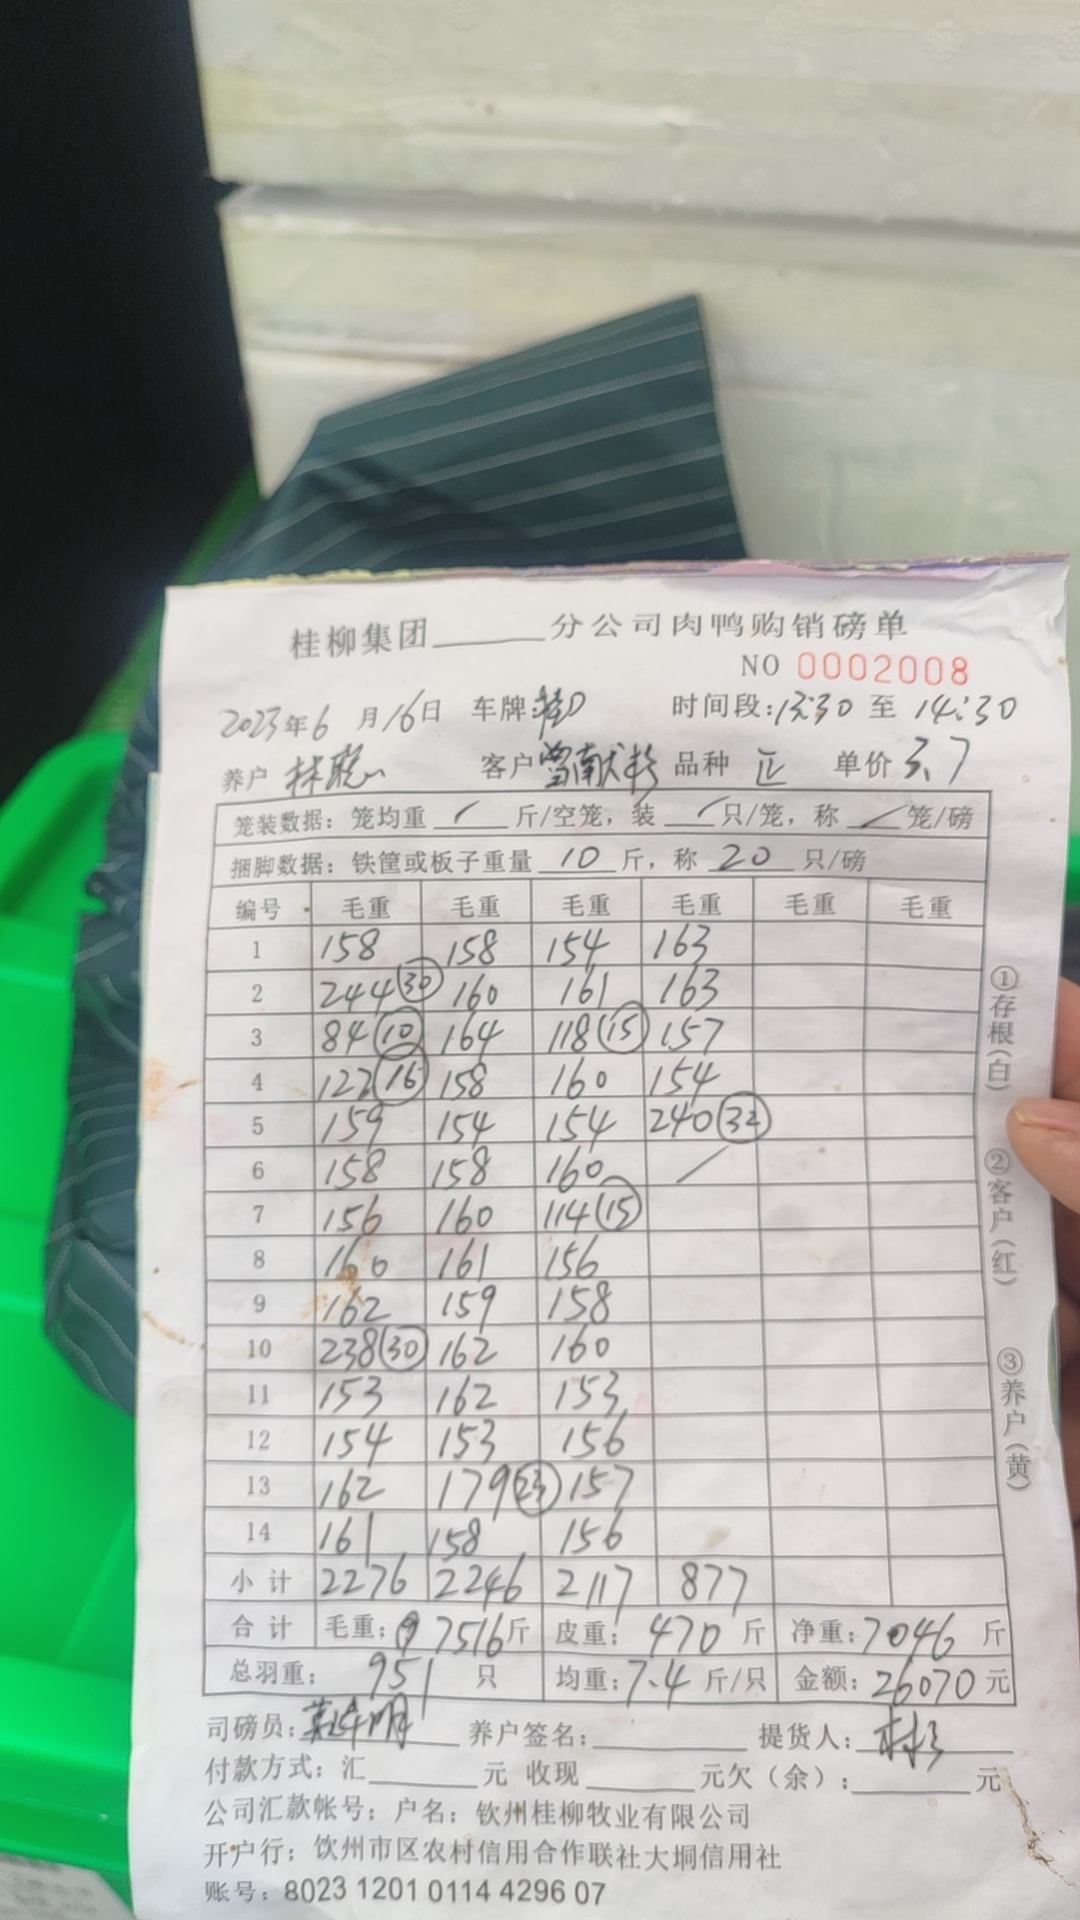 桂柳集团______分公司肉鸭购销磅单
NO 0002008
2023年6月16日 车牌:桂D 时间段:13:30 至 14:30
养户 林聪 客户 曾献彬 品种 正 单价 3.7
笼装数据: 笼均重 / 斤/空笼, 装 / 只/笼, 称 / 笼/磅
捆脚数据: 铁筐或板子重量 10 斤, 称 20 只/磅
编号 毛重 毛重 毛重 毛重 毛重 毛重
1 158 158 154 163
2 244(30) 160 161 163
3 84(10) 164 118(15) 157
4 127(16) 158 160 154
5 159 154 154 240(32)
6 158 158 160 /
7 156 160 114(15)
8 160 161 156
9 162 159 158
10 238(30) 162 160
11 153 162 153
12 154 153 156
13 162 179(23) 157
14 161 158 156
小计 2276 2246 2117 877
合计 毛重: 7516斤 皮重: 470 斤 净重: 7046 斤
总羽重: 951 只 均重: 7.4 斤/只 金额: 26070 元
司磅员: 养户签名: 提货人:
付款方式: 汇______元 收现______元欠(余):______元
公司汇款帐号; 户名: 钦州桂柳牧业有限公司
开户行; 饮州市区农村信用合作联社大垌信用社
账号: 8023 1201 0114 4296 07
①存根(白)
②客户(红)
③养户(黄)